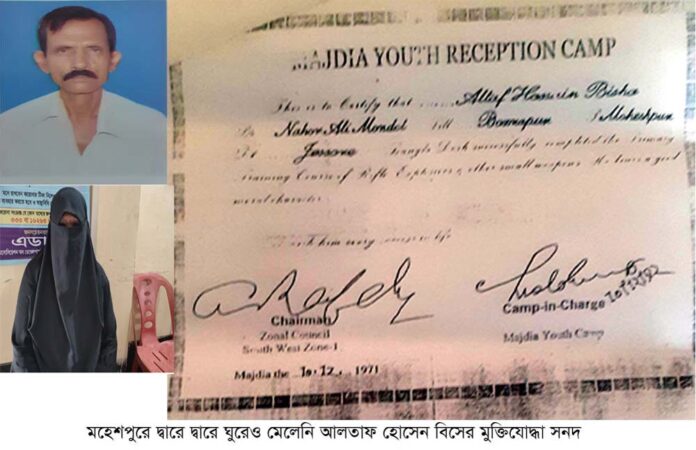 MAJDIA YOUTH RECEPTION CAMP
This is to Certify that Altaf Hossein Bisha
S/o Nahor Ali Mondol Vill Bamnapur P.S Moheshpur
Dt Jessore Bangla Desh successfully completed the Primary
Training Course of Rifle Explosives & other small weapons. He bears a good
moral character.
I wish him every success in life.
Chairman
Zonal Council
South West Zone-1
Camp-in-Charge
Majdia Youth Camp
Majdia the 10.12. 1971
এডা
মহেশপুরে দ্বারে দ্বারে ঘুরেও মেলেনি আলতাফ হোসেন বিসের মুক্তিযোদ্ধা সনদ